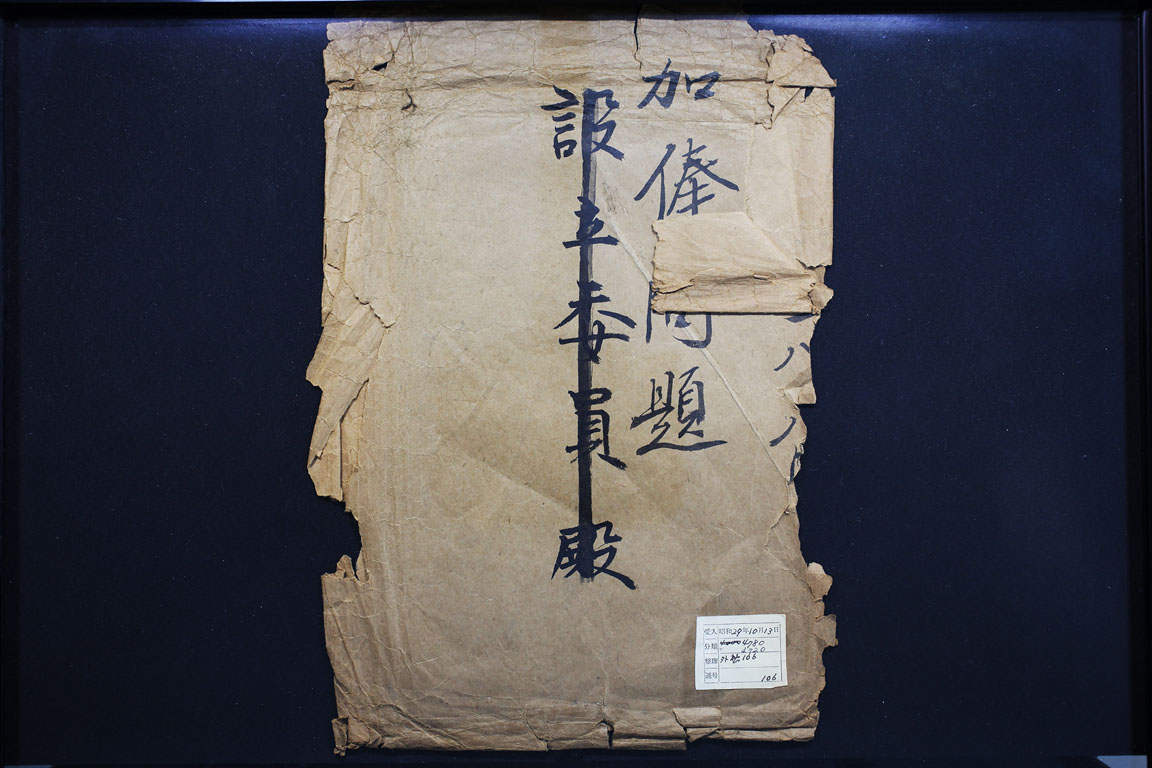 加俸問題
設立委員殿
受入 昭和29年10月13日
分類 4000 4780
4720
整理 106
番号 106